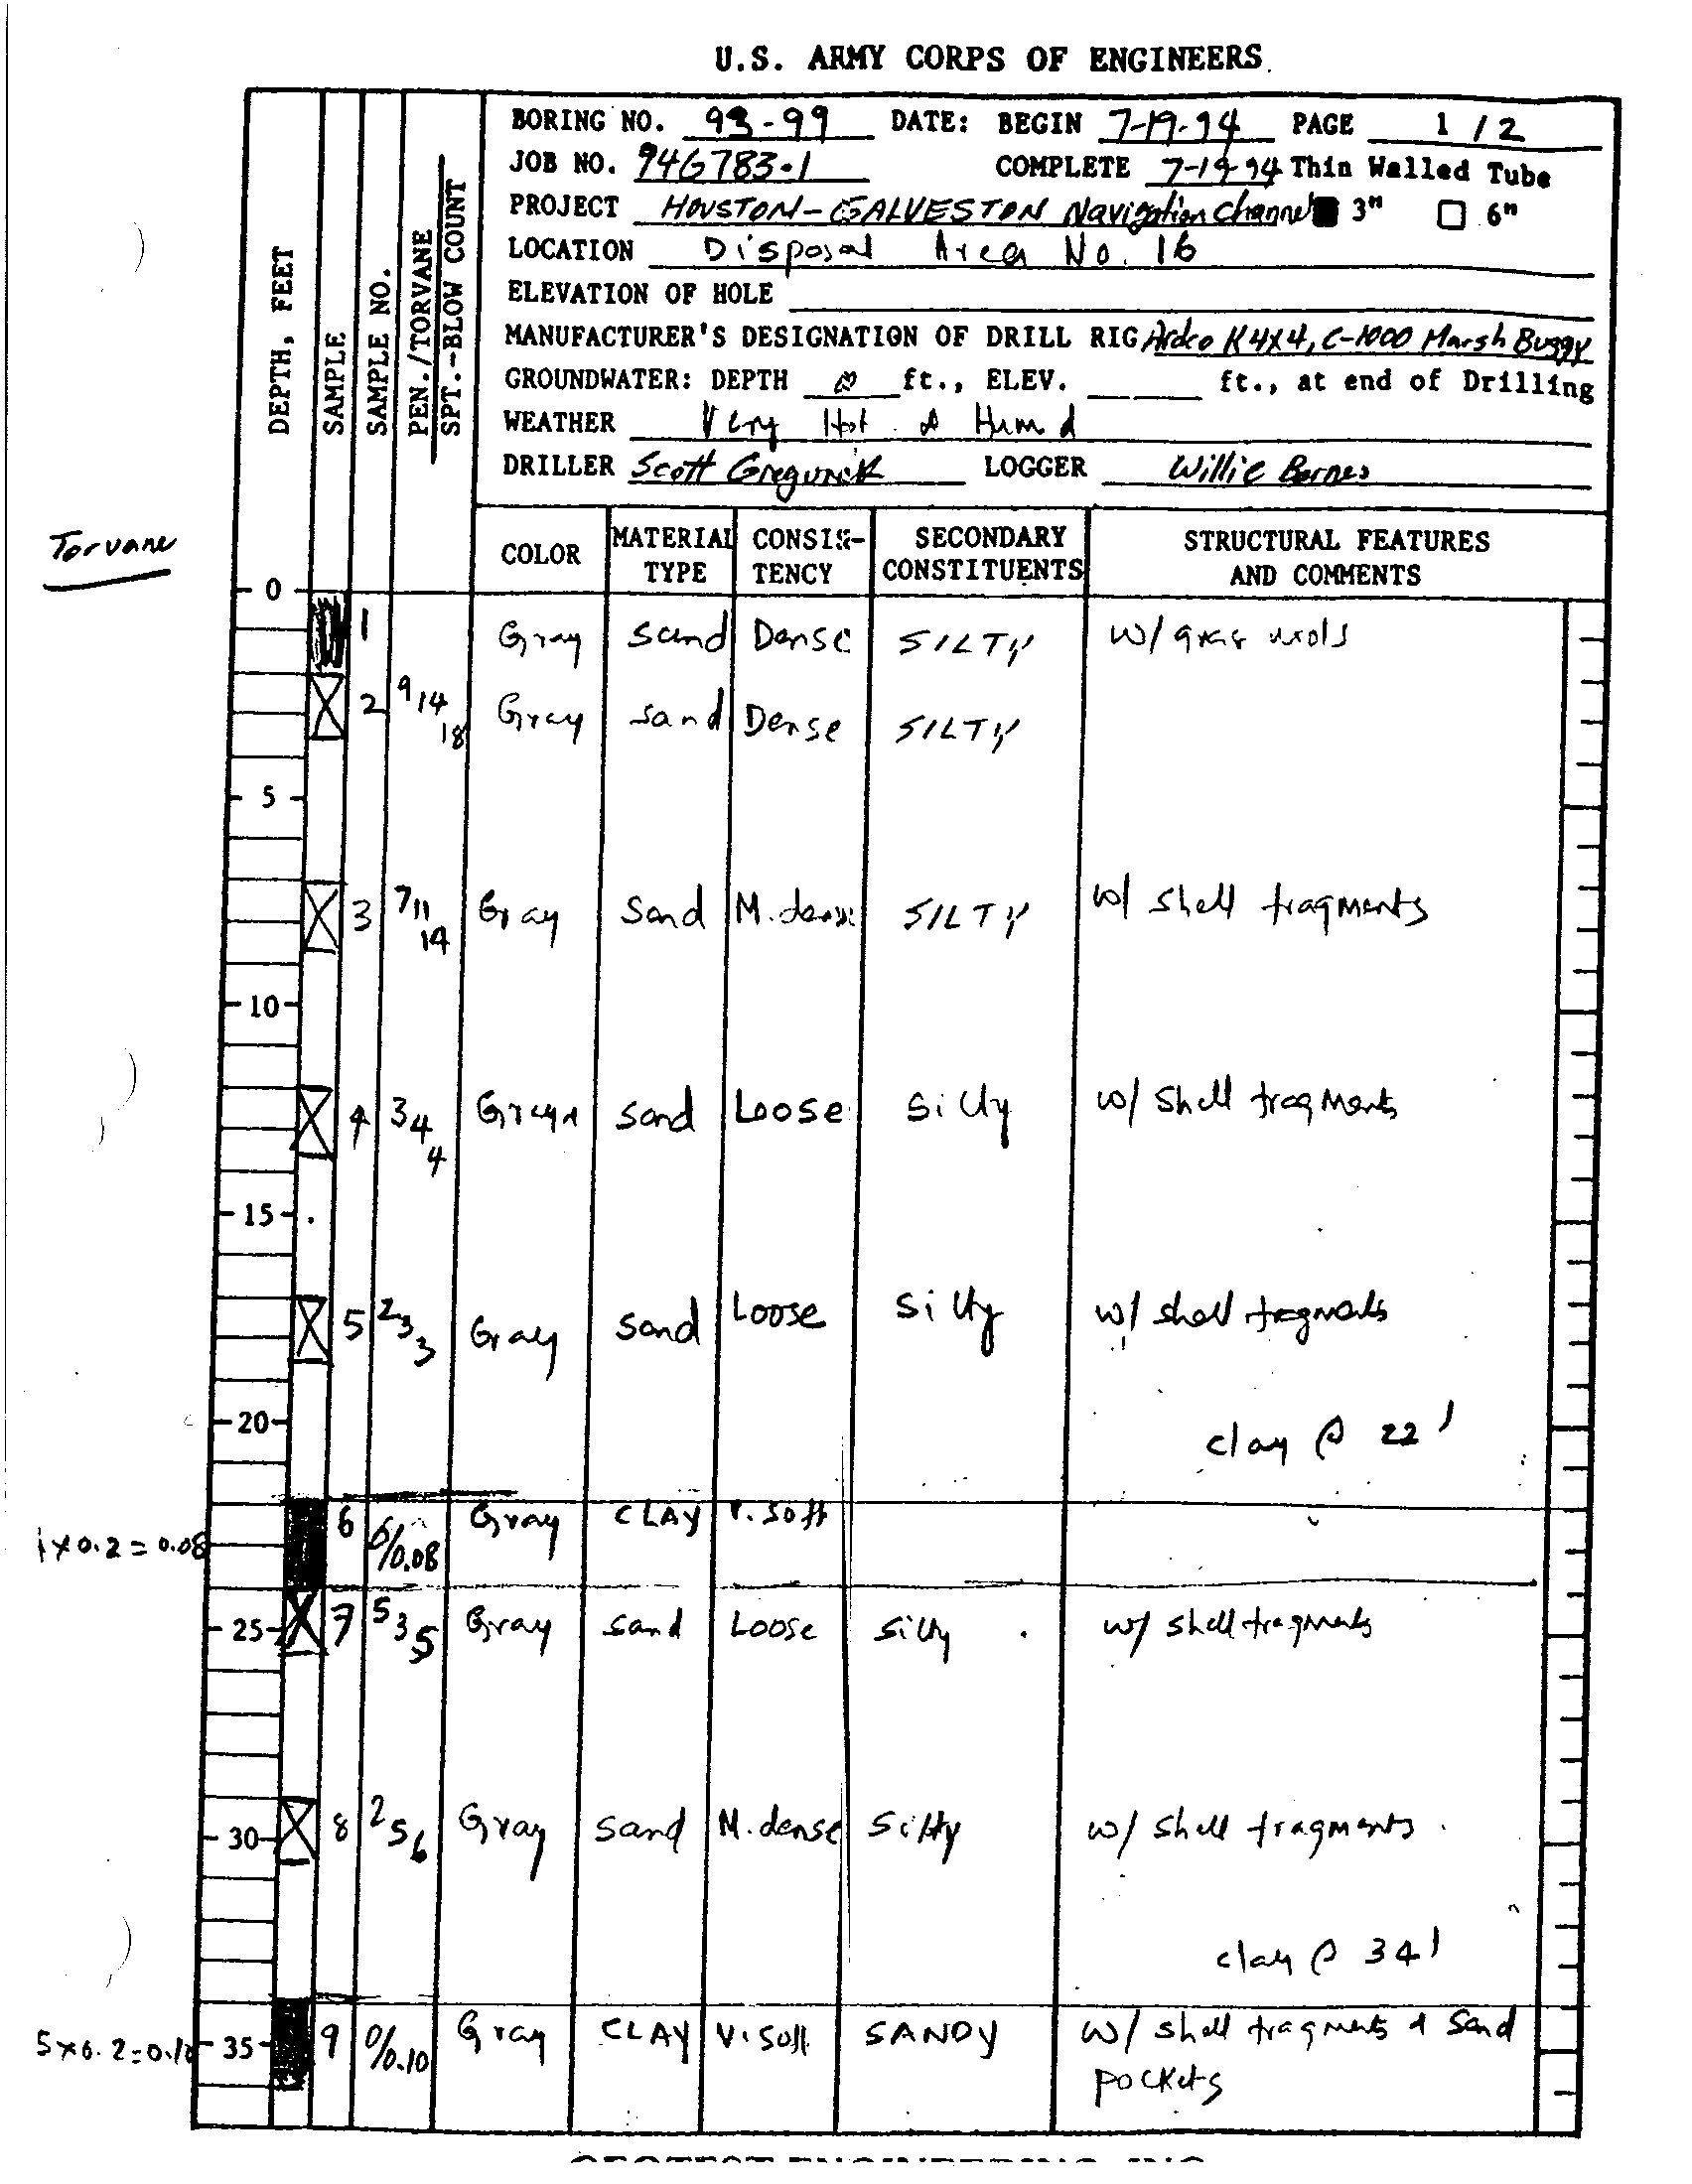 U.S. ARMY CORPS OF ENGINEERS
BORING NO. 93-99 DATE: BEGIN 7-19-94 PAGE 1 / 2
JOB NO. 94G783.1 COMPLETE 7-19-94 Thin Walled Tube
PROJECT HOUSTON-GALVESTON Navigation Channel 3" 6"
LOCATION Disposal Area No. 16
ELEVATION OF HOLE
MANUFACTURER'S DESIGNATION OF DRILL RIG Ardco K 4x4, C-1000 Marsh Buggy
GROUNDWATER: DEPTH 0 ft., ELEV. ft., at end of Drilling
WEATHER Very Hot & Humid
DRILLER Scott LOGGER Willie Barnes
DEPTH, FEET
SAMPLE
SAMPLE NO.
PEN./TORVANE
SPT.-BLOW COUNT
COLOR MATERIAL TYPE CONSIS-TENCY SECONDARY CONSTITUENTS STRUCTURAL FEATURES AND COMMENTS
Torvane
0
1 Gray sand Dense SILTY w/
2 9 14 18 Gray sand Dense SILTY
5
3 7 11 14 Gray Sand M. dense SILTY w/ shell fragments
10
4 3 4 4 Gray sand Loose silty w/ shell fragments
15
5 2 3 3 Gray sand Loose silty w/ shell fragments
20
clay @ 22'
6 0/0.08 Gray CLAY V. soft
x 0.2 = 0.08
25 7 5 3 5 Gray sand Loose silty w/ shell fragments
30 8 2 5 6 Gray sand M. dense silty w/ shell fragments
clay @ 34'
5 x 0.2 = 0.10 35 9 0/0.10 Gray CLAY V. soft SANDY w/ shell fragments & sand
pockets